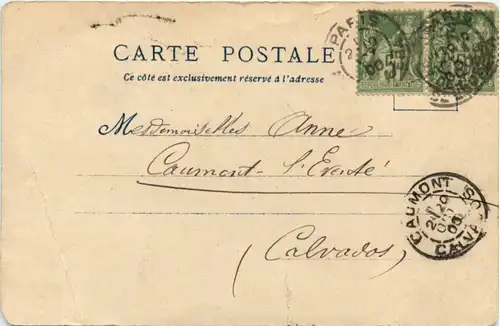 PARIS
CARTE POSTALE
Ce côté est exclusivement réservé à l'adresse
Mesdemoiselles Anne
Caumont-l'Eventé
(Calvados)
CAUMONT
CALVA